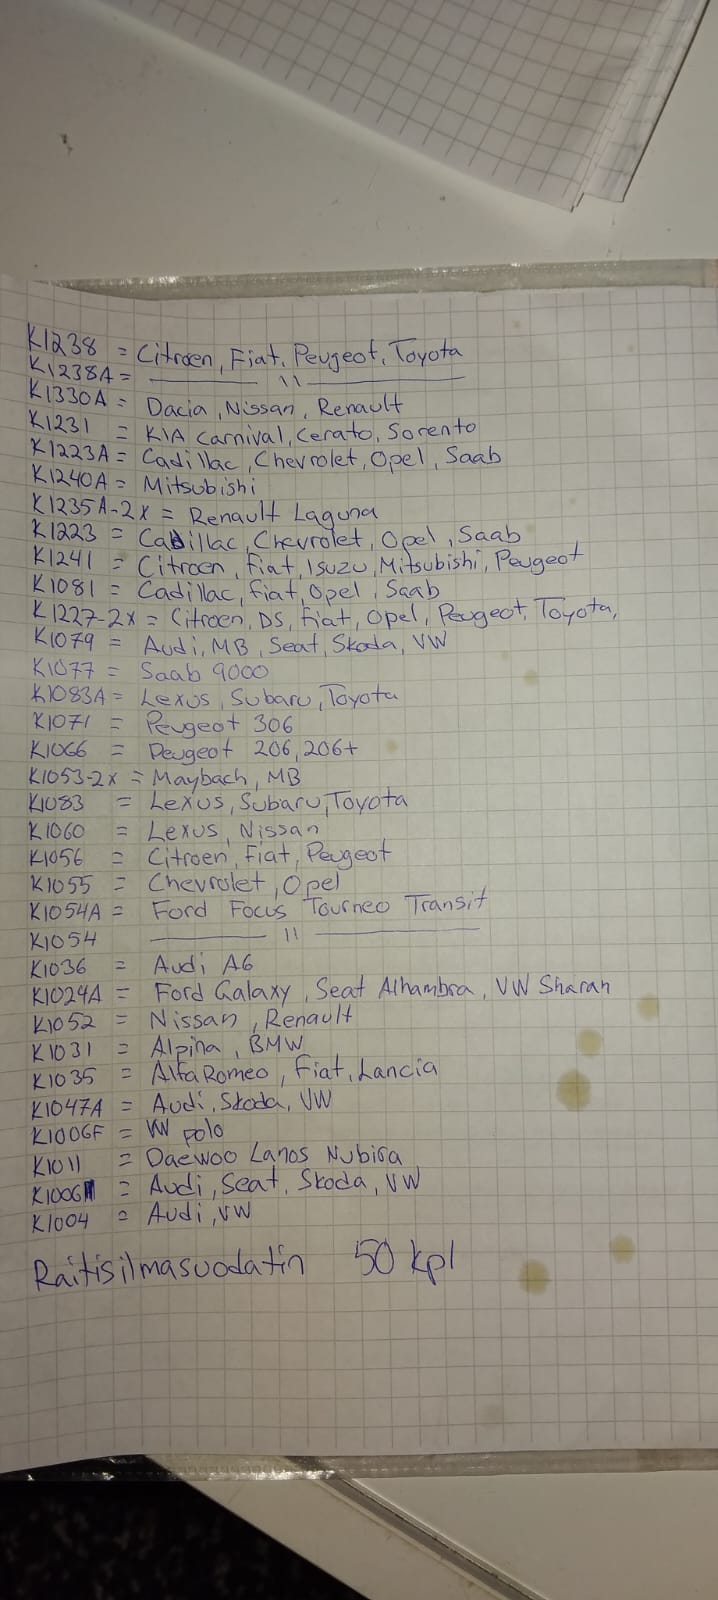 K1238 = Citroen, Fiat, Peugeot, Toyota
K1238A = —— 11 ——
K1330A = Dacia, Nissan, Renault
K1231 = KIA Carnival, Cerato, Sorento
K1223A = Cadillac, Chevrolet, Opel, Saab
K1240A = Mitsubishi
K1235A-2x = Renault Laguna
K1223 = Cadillac, Chevrolet, Opel, Saab
K1241 = Citroen, Fiat, Isuzu, Mitsubishi, Peugeot
K1081 = Cadillac, Fiat, Opel, Saab
K1227-2x = Citroen, DS, Fiat, Opel, Peugeot, Toyota,
K1079 = Audi, MB, Seat, Skoda, VW
K1077 = Saab 9000
K1083A = Lexus, Subaru, Toyota
K1071 = Peugeot 306
K1066 = Peugeot 206, 206+
K1053-2x = Maybach, MB
K1083 = Lexus, Subaru, Toyota
K1060 = Lexus, Nissan
K1056 = Citroen, Fiat, Peugeot
K1055 = Chevrolet, Opel
K1054A = Ford Focus Tourneo Transit
K1054 —— 11 ——
K1036 = Audi A6
K1024A = Ford Galaxy, Seat Alhambra, VW Sharan
K1052 = Nissan, Renault
K1031 = Alpina, BMW
K1035 = Alfa Romeo, Fiat, Lancia
K1047A = Audi, Skoda, VW
K1006F = VW polo
K1011 = Daewoo Lanos Nubira
= Audi, Seat, Skoda, VW
K1004 = Audi, VW
Raitisilmasuodatin 50 kpl